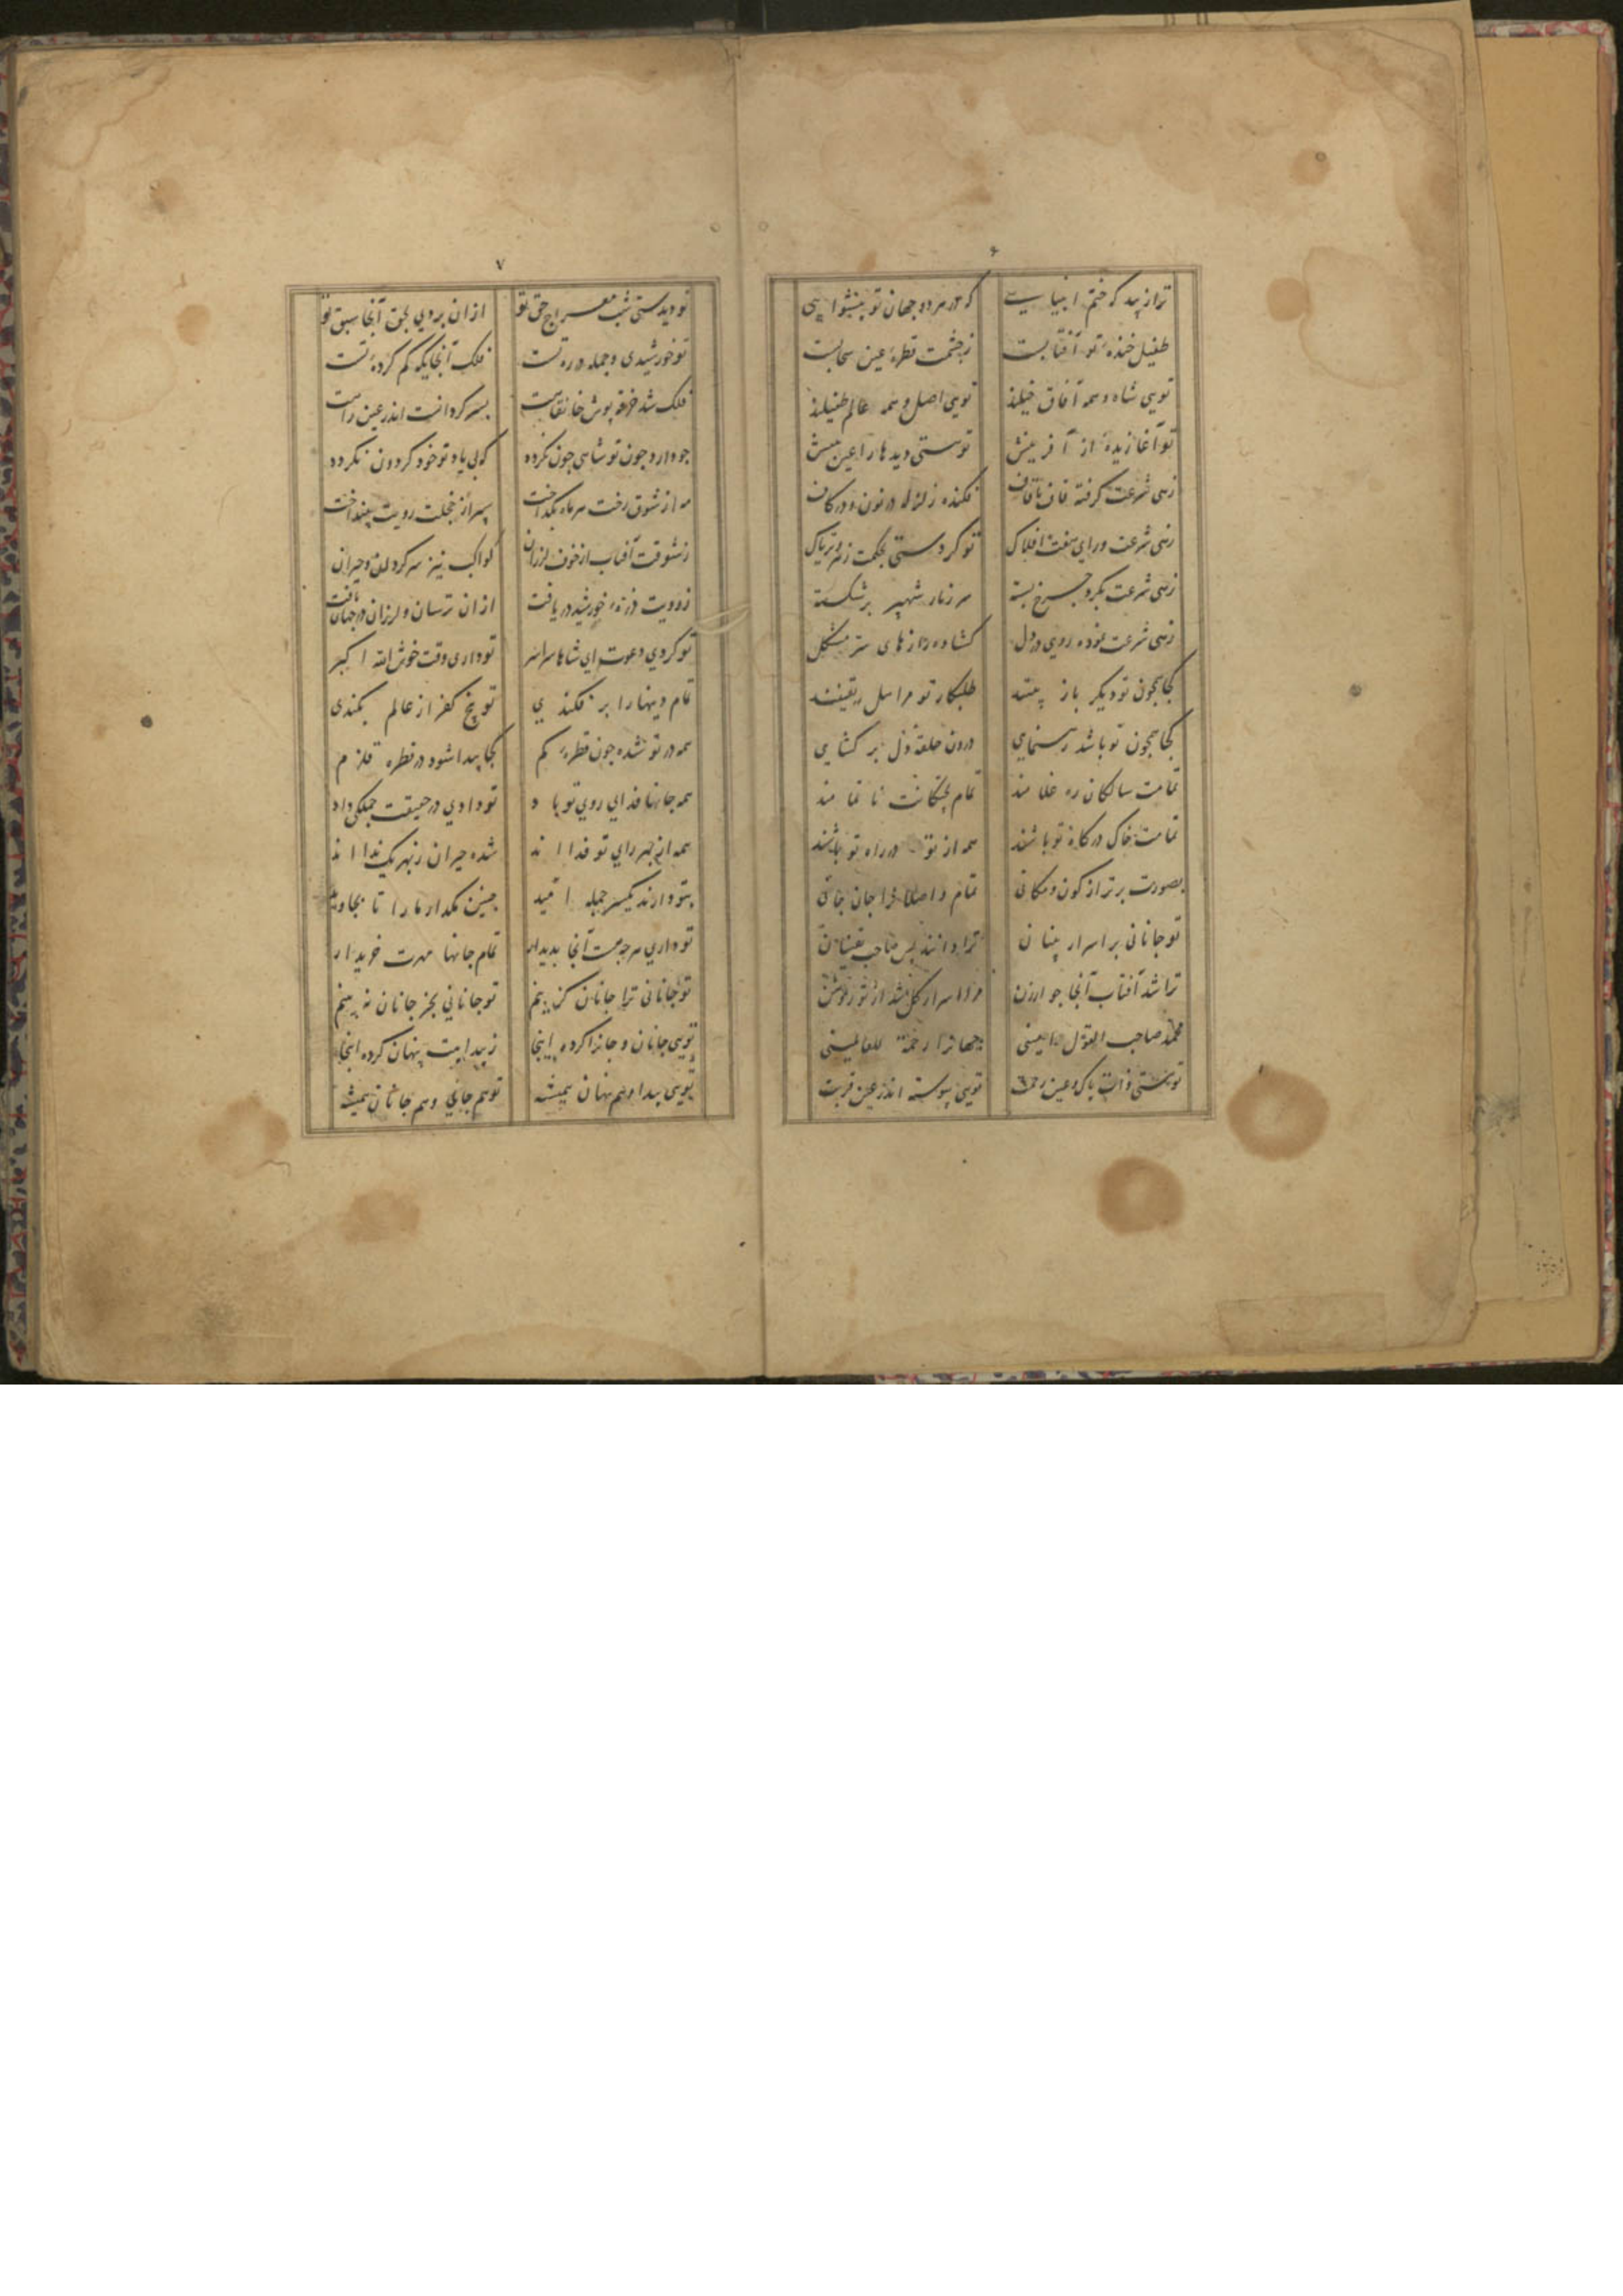 ۶
ترا زیبد که ختم انبیایی که در هر دو جهان تو پیشوایی
طفیل خنده تو آفتابست ز چشمت قطره عین سحابست
تویی شاه و همه آفاق خیلند تویی اصل و همه عالم طفیلند
تو آغازیده از آفرینش تو هستی دیدها را عین بینش
زهی شرعت گرفته قاف تا قاف فکنده زلزله در نون و در کاف
زهی شرعت ورای هفت افلاک تو کردستی بحکمت زهر تریاک
زهی شرعت بگرد چرخ بسته شهپر برشکسته
زهی شرعت نموده روی در دل گشاده رازهای سر مشکل
کجا همچون تو دیگر باز بینند طلبکار تو مر اهل یقینند
کجا همچون تو باشد رهنمایی درون حلقه دل برگشایی
تمامت سالکان ره غلامند تمام پختگانت ناتمامند
تمامت خاک درگاه تو باشند همه از تو در راه تو باشند
بصورت برتر از کون و مکانی تمام واصلانرا جان جانی
تو جانانی بر اسرار بینان ترا دانند بس صاحب یقینان
ترا شد آفتاب آنجا جو ارزن
محمد صاحب القول امینی جهانرا رحمة للعالمینی
تو هستی ذات پاک و عین رحمت تویی پیوسته اندر عین قربت
۷
تو دیدستی شب معراج حق تو از آن بردی بحق آنجا سبق تو
تو خورشیدی و جمله ذره تست فلک آنجایگه گم کرده تست
فلک شد خرقه پوش خانقاهت بسر گردانست اندر عین راهت
جو دارد جون تو شاهی جون نگردد که بی یاد تو خود گردون نگردد
مه از شوق رخت هر ماه بگداخت سپر از خجلت رویت بینداخت
ز شوقت آفتاب از خوف لرزان کواکب نیز سرگردان و حیران
ز رویت ذره خورشید دریافت از آن ترسان و لرزان در جهان تافت
تو کردی دعوت ای شاها سراسر تو داری وقت خوش الله اکبر
تمام دینها را برفکندی تو بیخ کفر از عالم بکندی
همه در تو شده جون قطره گم کجا پیدا شود در قطره قلزم
همه جانها فدای روی تو باد تو دادی در حقیقت جملگی داد
همه از بهر رای تو فدااند شده حیران ز بهر یک ندااند
بتو دارند یکسر جمله امید جنین مگذار ما را تا بجاوید
تو داری هرجه هست آنجا بدیدار تمام جانها مهرت خریدار
تو جانانی ترا جانان گزینم تو جانانی بجز جانان نه بینم
تویی جانان و جانرا کرده اینجا ز پیداییت پنهان کرده اینجا
تویی پیدا و هم پنهان همیشه تو هم جانی و هم جانان همیشه